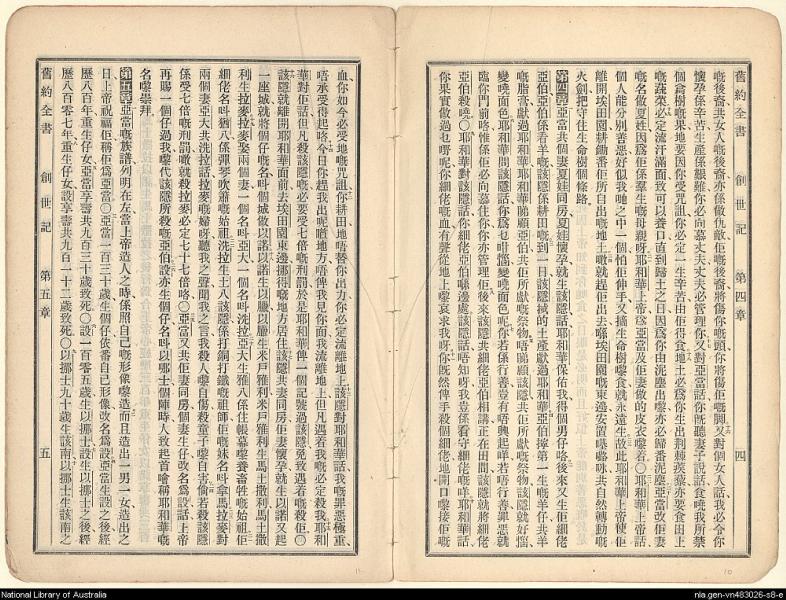 舊約全書 創世記 第四章 四
嘅後裔共女人嘅後裔亦係做仇敵佢嘅後裔將傷你嘅頭你將傷佢嘅脚又對個女人話我必令你
懷孕係辛苦生產係艱難你必向慕丈夫丈夫必管理你又對亞當話你既聽妻子說話食嘵我所禁
個樹嘅果地要因你受咒詛你必定一生辛苦由佢得食地土必爲你生出荆棘蒺藜亦要食田上
嘅蔬菜必定流汗滿面致可以餬口直到歸土之日因爲你由泥塵出嚟亦必歸番泥塵亞當改佢妻
嘅名做夏娃因爲佢係羣生嘅母親呀耶和華上帝爲亞當及佢妻做的皮衣嚟着〇耶和華上帝話
個人能分別善惡好似我哋之中一個怕佢伸手又摘生命樹嚟食就永遠生故此耶和華上帝使佢
離開埃田園耕鋤番佢所自出嘅地土噉就趕佢出去喺埃田園嘅東邊安置 共自然轉動嘅
火劍把守住生命樹個條路
第四章亞當共佢妻夏娃同房夏娃懷孕就生該隱話耶和華保佑我得個男仔咯後來又生佢細佬
亞伯亞伯係看羊嘅該隱係耕田嘅到一日該隱拭的土產獻過耶和華亞伯擰第一生嘅羊仔共羊
嘅脂膏獻過耶和華耶和華睇顧亞伯共佢所獻嘅祭物唔睇顧該隱共佢所獻嘅祭物該隱就好惱
變嘵面色耶和華問該隱話你爲乜咁惱變嘵面色呢你若係行善豈有唔興起咩若唔行善罪惡就
臨你門前咯惟係佢必向慕住你你亦管理佢後來該隱共細佬亞伯相講正在田間該隱就將細佬
亞伯殺嘵〇耶和華對該隱話你細佬亞伯喺邊處該隱話唔知呀我豈係看守細佬嘅咩耶和華話
你果實做過乜嘢呢你細佬嘅血有聲從地上嚟哀求我呀你既然俾手殺個細佬地開口嚟接佢嘅
血你如今必受地嘅咒詛你耕田地唔替你出力你必定流離地上該隱對耶和華話我嘅罪惡極重
唔承受得起咯今日你趕我出呢啲地方唔俾我見你面我流離地上但凡遇着我嘅必定殺我耶和
華對佢話但凡殺該隱嘅必要受七倍嘅刑罰於是耶和華俾一個記號過該隱免致遇着嘅殺佢〇
該隱就離開耶和華面前去埃田園東邊挪得嘅地方居住該隱共妻同房佢妻懷孕就生以諾又起
一座城就將個仔嘅名呌個城做以諾以諾生以臘以臘生米戶雅利米戶雅利生馬土撒利馬土撒
利生拉麥拉麥娶兩個妻一個名呌亞大一個名呌洗拉亞大生雅八係住帳幕嚟養畜牲嘅始祖佢
細佬名呌猶八係彈琴吹簫嘅始祖洗拉生土八該隱係打銅打鐵嘅祖師佢嘅妹名呌拿馬拉麥對
兩個妻亞大共洗拉話拉麥嘅婦呀聽我之聲聞我之言我殺人嚟自傷殺童子嚟自害倘若殺該隱
係受七倍嘅刑罰噉就殺拉麥必定七十七倍咯〇亞當又共佢妻同房個妻生仔改名爲設話上帝
再賜一個仔過我嚟代該隱所殺嘅亞伯設亦生個仔名呌以挪士個陣時人大致起首噲稱耶和華嘅
名嚟崇拜
第五章亞當嘅族譜列明在左當上帝造人之時係照自己嘅形像嚟造而且造出一男一女造出之
日上帝祝福佢稱佢爲亞當〇亞當一百三十歲生個仔依番自己形像改名爲設亞當生設之後經
歷八百年重生仔女亞當享壽共九百三十歲致死〇設一百零五歲生以挪士設生以挪士之後經
歷八百零七年重生仔女設享壽共九百一十二歲致死〇以挪士九十歲生該南以挪士生該南之
舊約全書 創世記 第五章 五
National Library of Australia
nla.gen-vn483026-s8-e